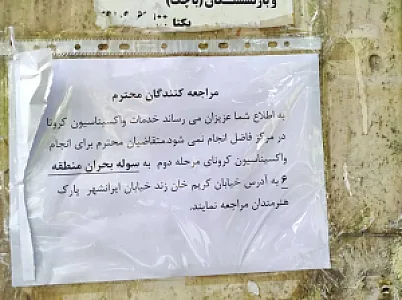 و بازنشستگان (باجک)
یکتا
مراجعه کنندگان محترم
به اطلاع شما عزیزان می رساند خدمات واکسیناسیون کرونا
در مرکز فاضل انجام نمی شود.متقاضیان محترم برای انجام
واکسیناسیون کرونای مرحله دوم به سوله بحران منطقه
۶ به آدرس خیابان کریم خان زند خیابان ایرانشهر پارک
هنرمندان مراجعه نمایند.